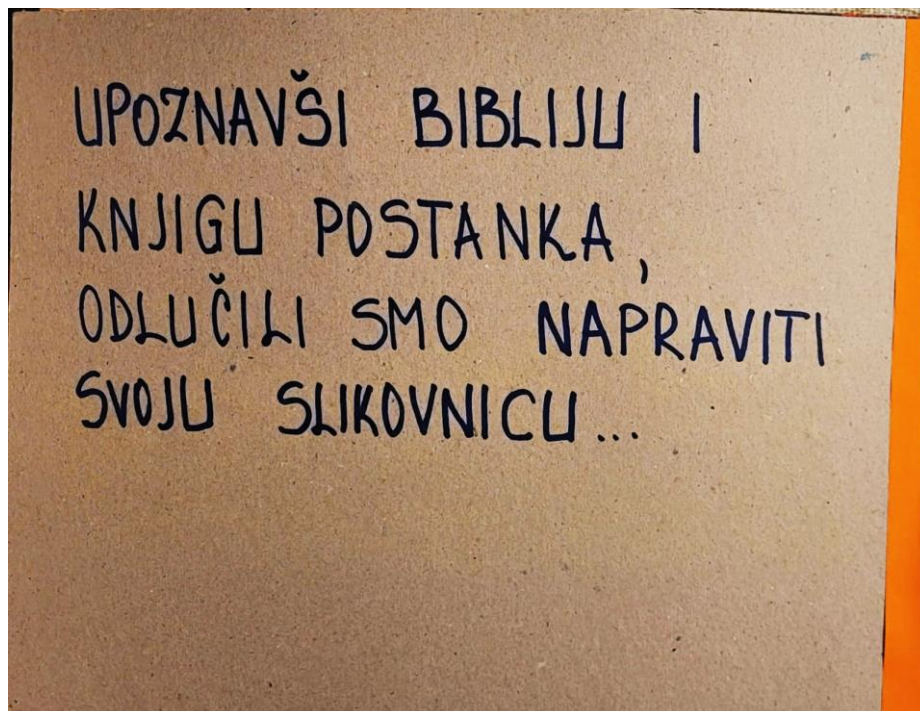 UPOZNAVŠI BIBLIJU I
KNJIGU POSTANKA,
ODLUČILI SMO NAPRAVITI
SVOJU SLIKOVNICU...